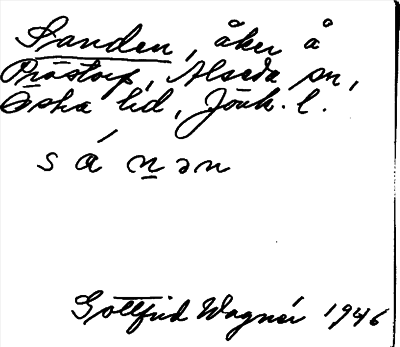 Sanden, åker å
Prästorp, Alseda sn,
Östra hd, Jönk. l.
s á n̲ ə n
Gottfrid Wagnér 1946